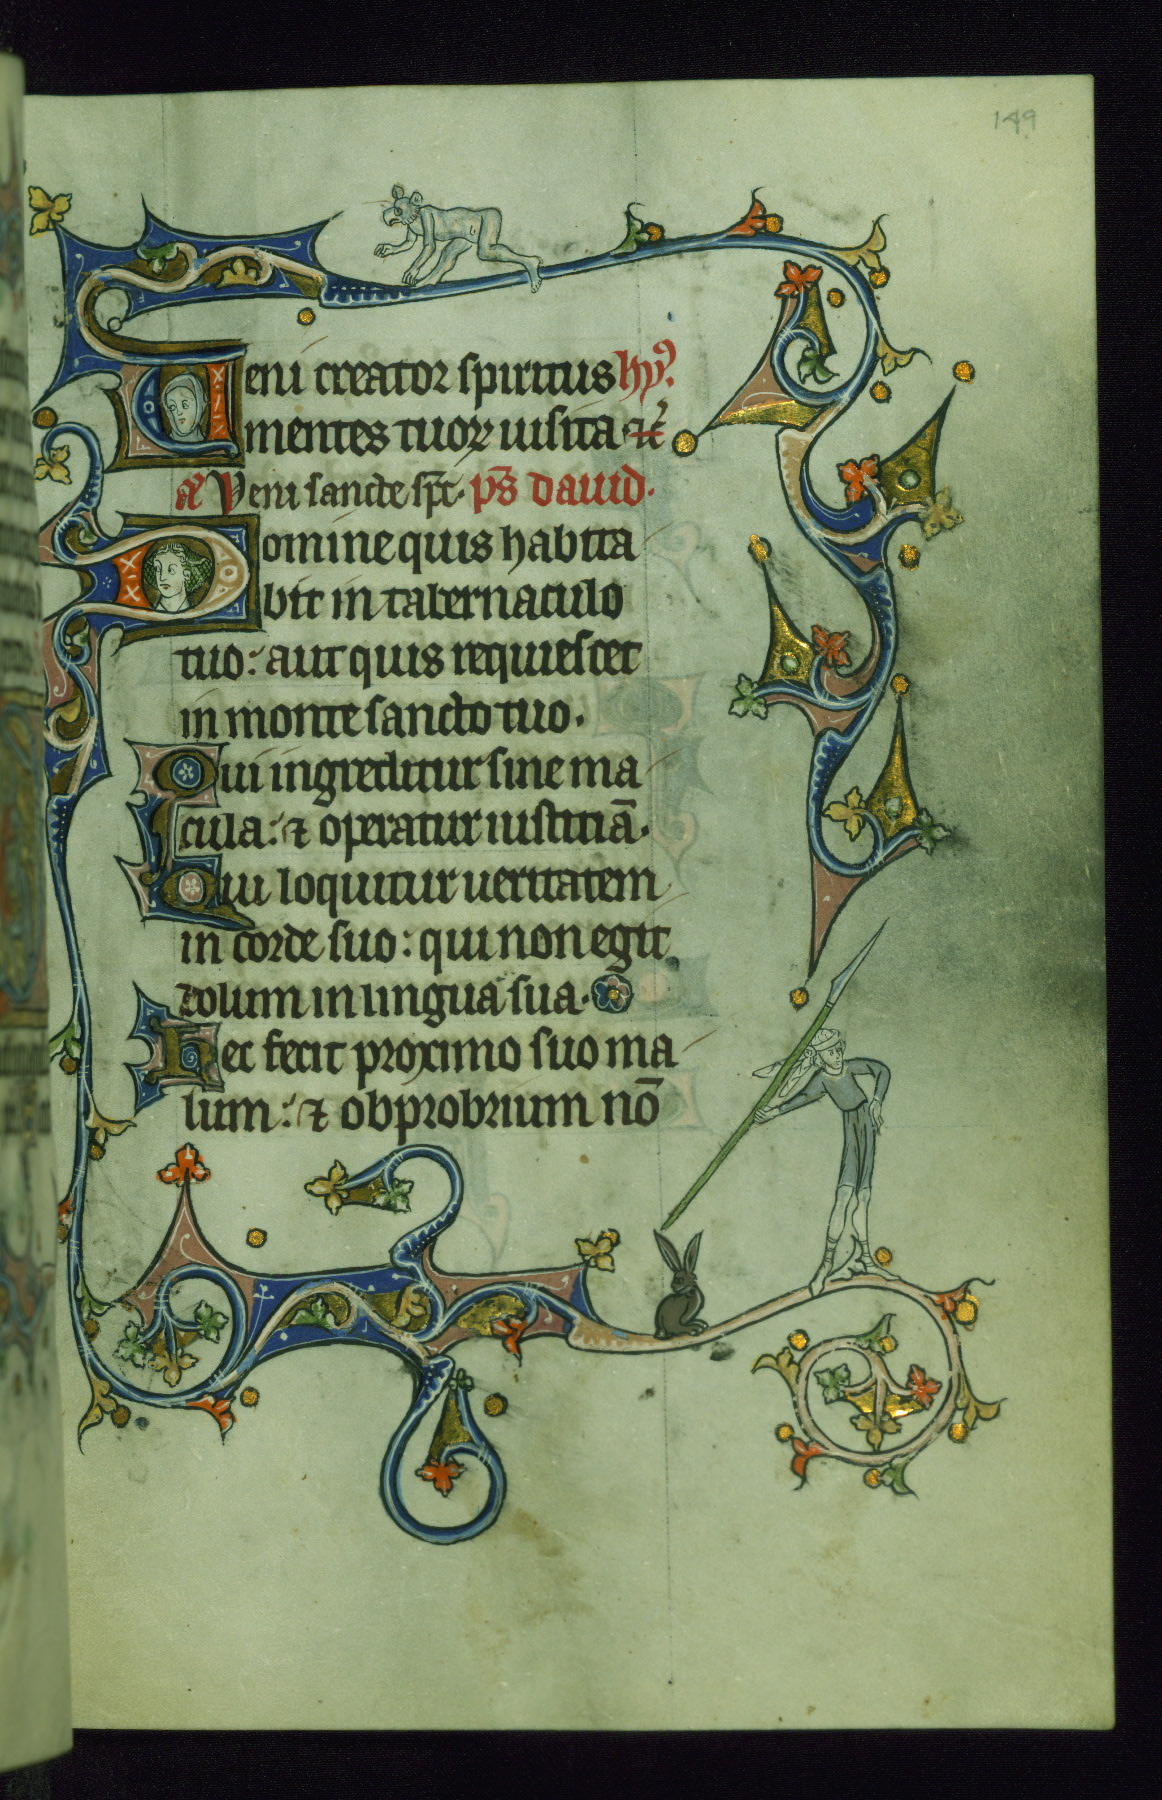 149
Veni creator spiritus hy᷒.
mentes tuoꝝ uisita ⁊c̾
añ Veni sancte sp̅c. ps̅ dauid.
Domine quis habita
bit in tabernaculo
tuo: aut quis requiescet
in monte sancto tuo.
Qui ingreditur sine ma
cula: ⁊ operatur iustitiā.
Qui loquitur ueritatem
in corde suo: qui non egit
dolum in lingua sua.
Nec fecit proximo suo ma
lum: ⁊ obprobrium nō